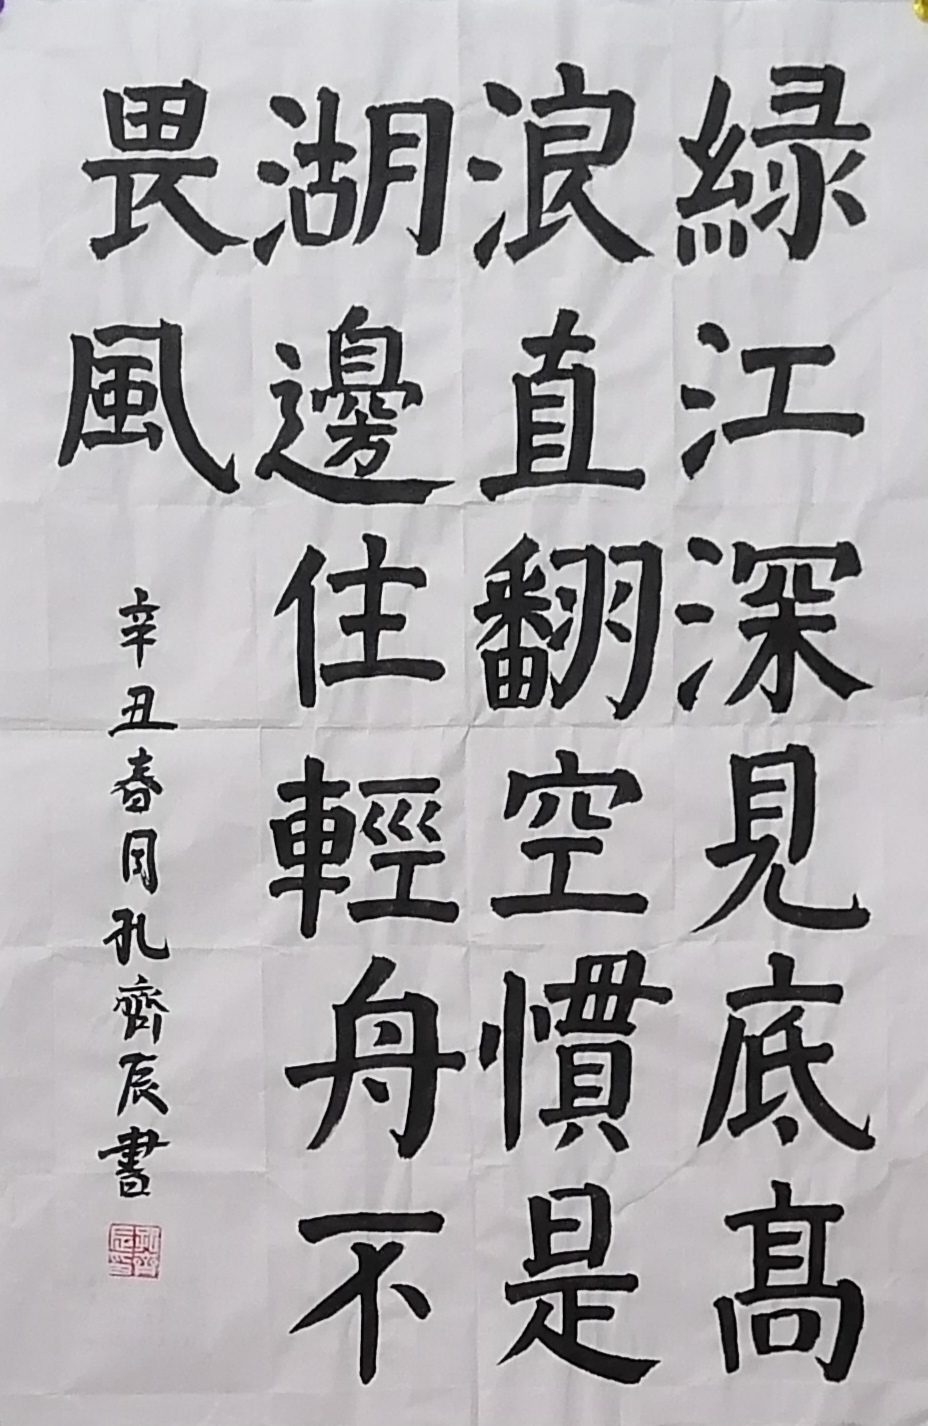 緑江深見底髙
浪直翻空慣是
湖邊住輕舟不
畏風
辛丑春月孔齊辰書